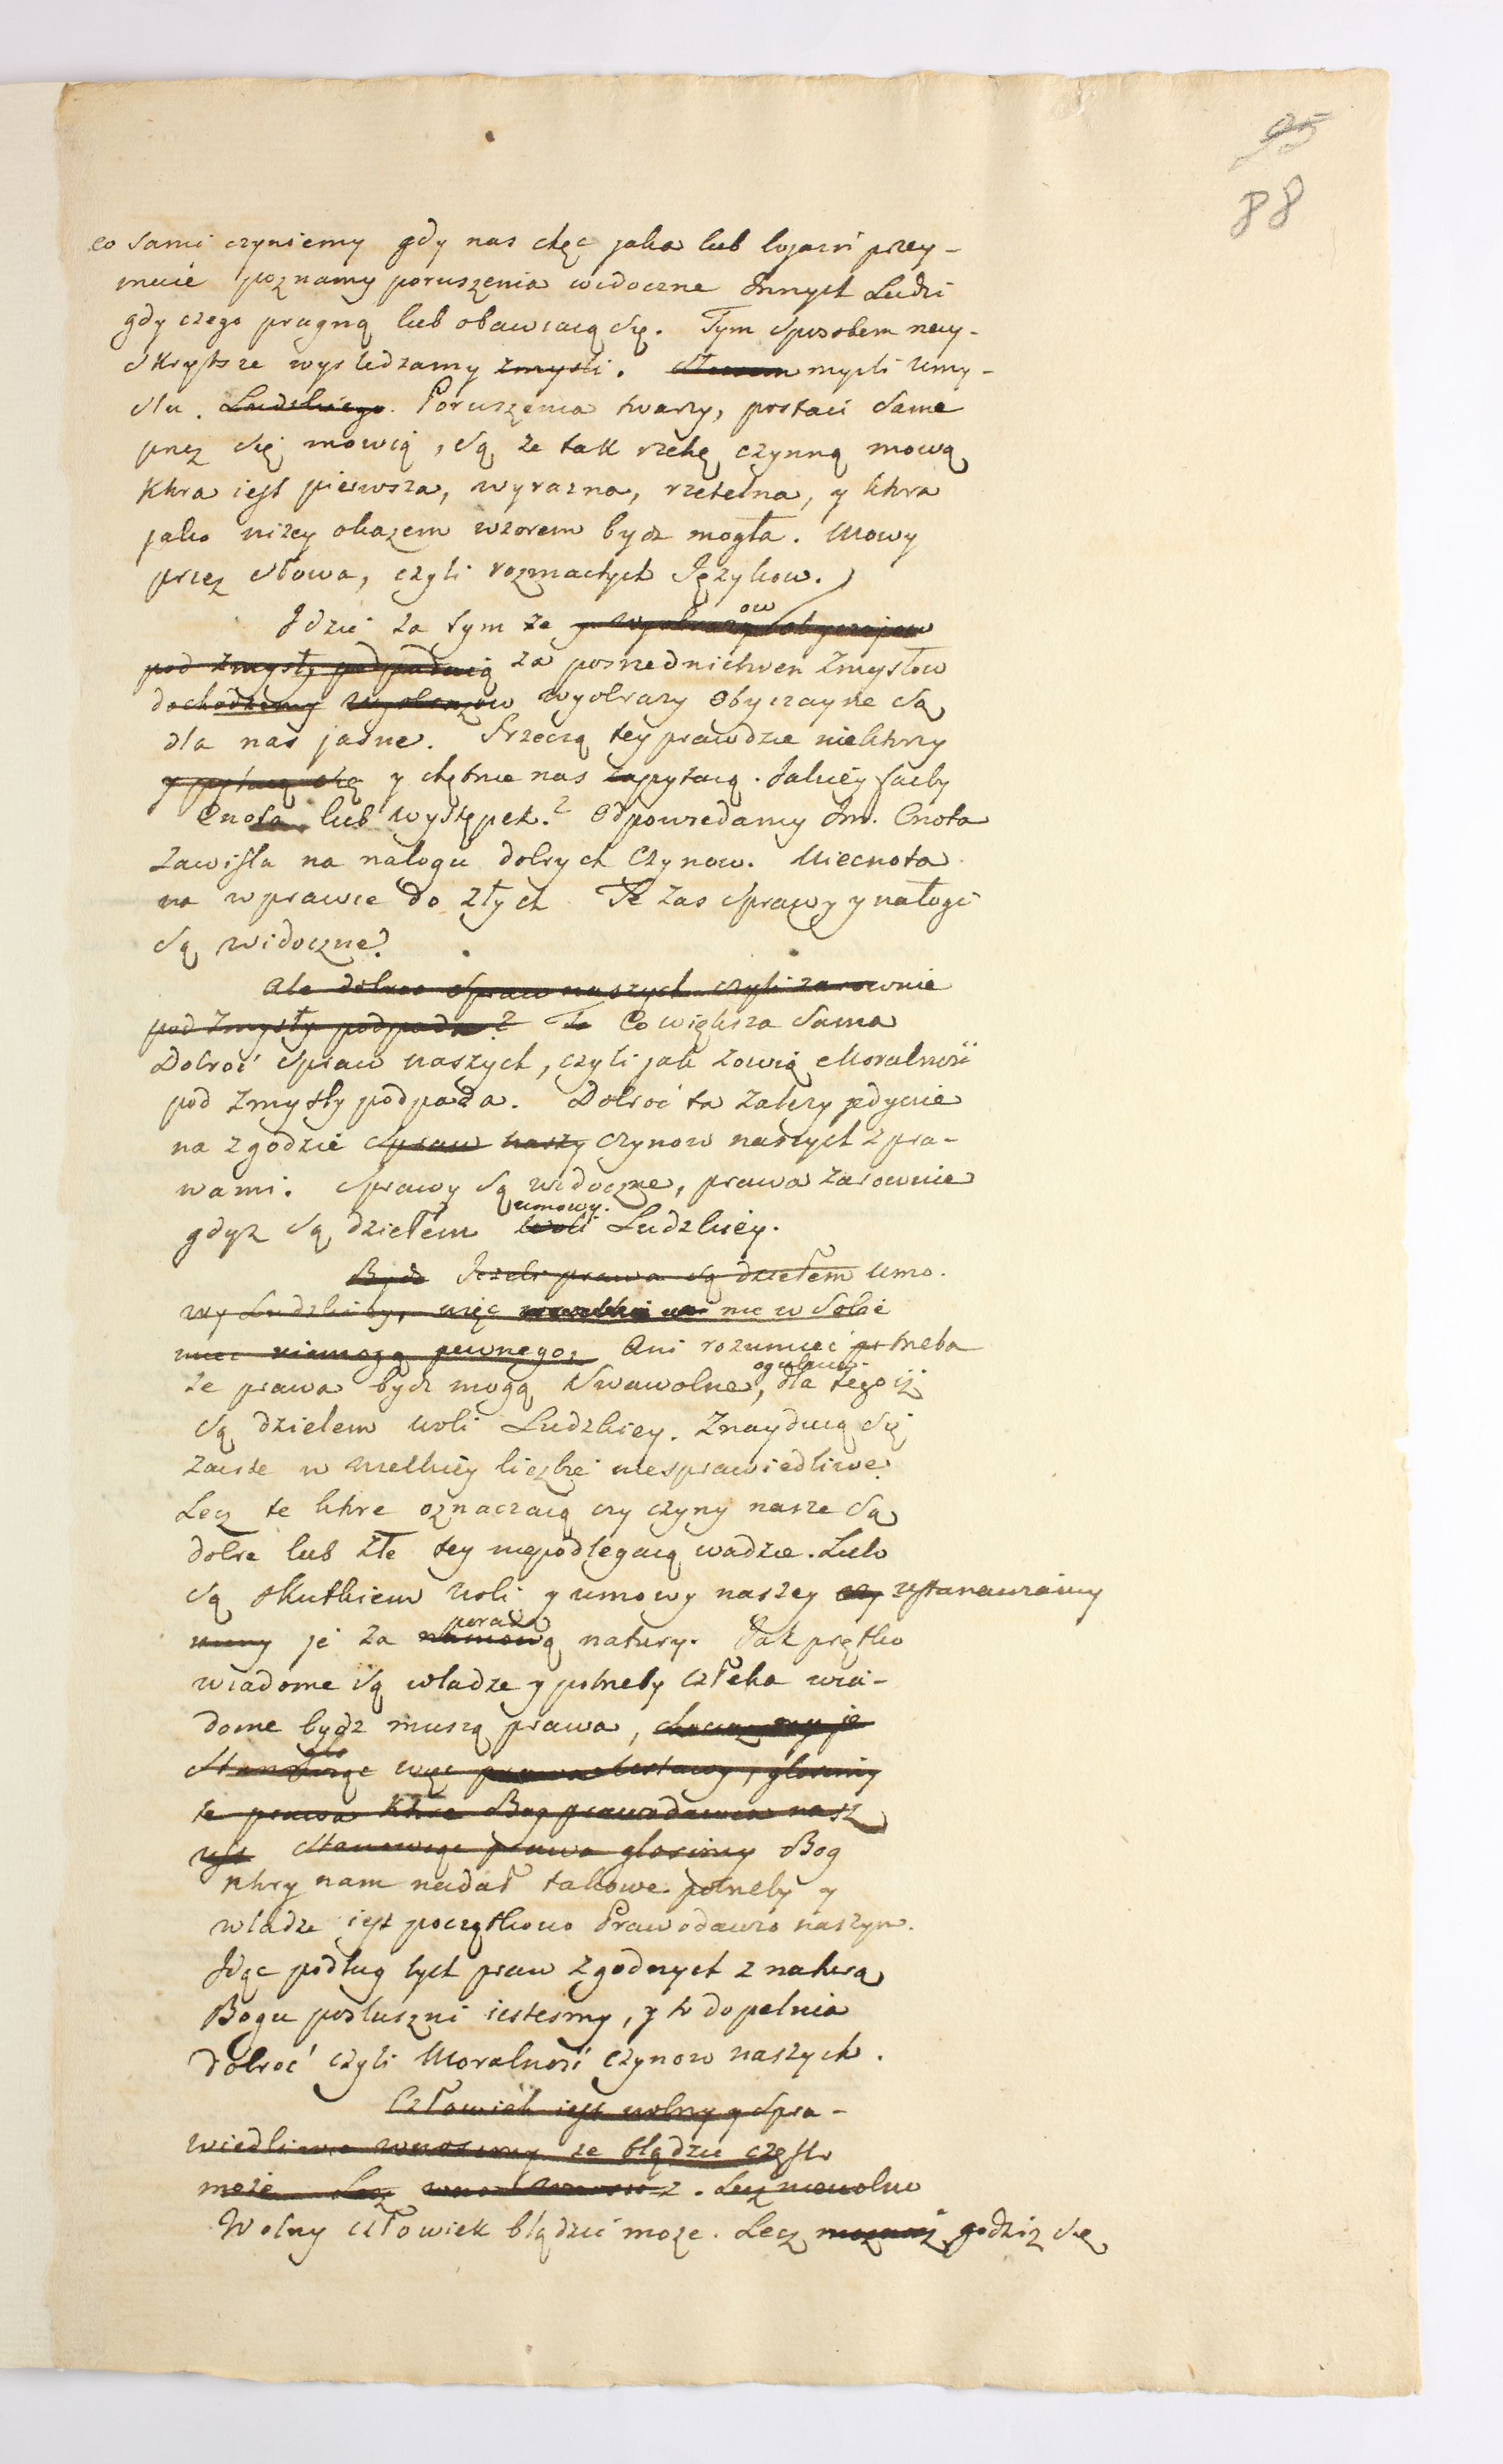 95
88
co sami czyniemy gdy nas chęć jaka lub bojaźń przey-
muie poznamy poruszenia widoczne Innych Ludzi
gdy czego pragną lub obawiaią się. Tym sposobem nay-
skrytsze wysledzamy zmysli. myśli Umy-
słu. Ludzkiego. Poruszenia twarzy, postaci same
przez się mowią, są że tak rzekę czynną mową
Ktora iest pierwsza, wyrazna, rzetelna, y ktora
jako niżey okażem wzorem bydz mogła. Mowy
przez słowa, czyli rozmaitych Języków.
Idzie za tym że y wyobrazow obyczajow
pod zmysły podpadaią za posrednictwem Zmysłow
dochodzemy wyobrazow wyobrazy Obyczayne są
dla nas jasne. Przeczą tey prawdzie niektorzy
y pytaią się y chętnie nas zapytaią. Jakiey farby
Cnota lub występek? Odpowiedamy Im. Cnota
zawisła na nałogu dobrych Czynow. Niecnota
na wprawie do złych Te zas sprawy y nałogi
są widoczne?
Ale dobroc spraw naszych czyli zarownie
pod Zmysły podpada? Ta Co większa sama
Dobroć spraw naszych, czyli jak zowią Moralność
pod zmysły podpada. Dobroć ta zależy jedynie
na zgodzie spraw naszy czynow naszych z pra-
wami. Sprawy są widoczne, prawa zarownie
umowy.
gdyz są dziełem woli Ludzkiey.
Bydz Jeżeli prawa są dziełem Umo-
wy Ludzkiey, więc nic w sobie
miec niemogą pewnego, Ani rozumieć potrzeba
ogulnie
że prawa bydz mogą swawolne, dla tego iż
są dziełem woli Ludzkiey. Znayduią się
zaiste w wielkiey liczbie niesprawiedliwe.
Lecz te ktore oznaczaią czy czyny nasze są
dobre lub złe tey niepodlegaią wadzie. Lubo
są skutkiem woli y umowy naszey czy ustanawiamy
poradą
je za namową natury. Jak prętko
wiadome są władze y potrzeby człeka wia-
dome bydz muszą prawa,
więc prawa Ustawy, głosimy
te prawa które Bog prawodawca nasz
Stanowiąc prawa głosimy Bog
ktory nam nadał takowe potrzeby y
władze iest początkowo Prawodawcą naszym.
Idąc podług tych praw zgodnych z naturą
Bogu posłuszni iestesmy, y to dopełnia
dobroć czyli Moralność czynow naszych.
Człowiek iest wolny y spra-
wiedliwie wnosimy ze błądzić często
może Lecz. Lecz niewolno
Wolny człowiek błądzić może. Lecz godziż się